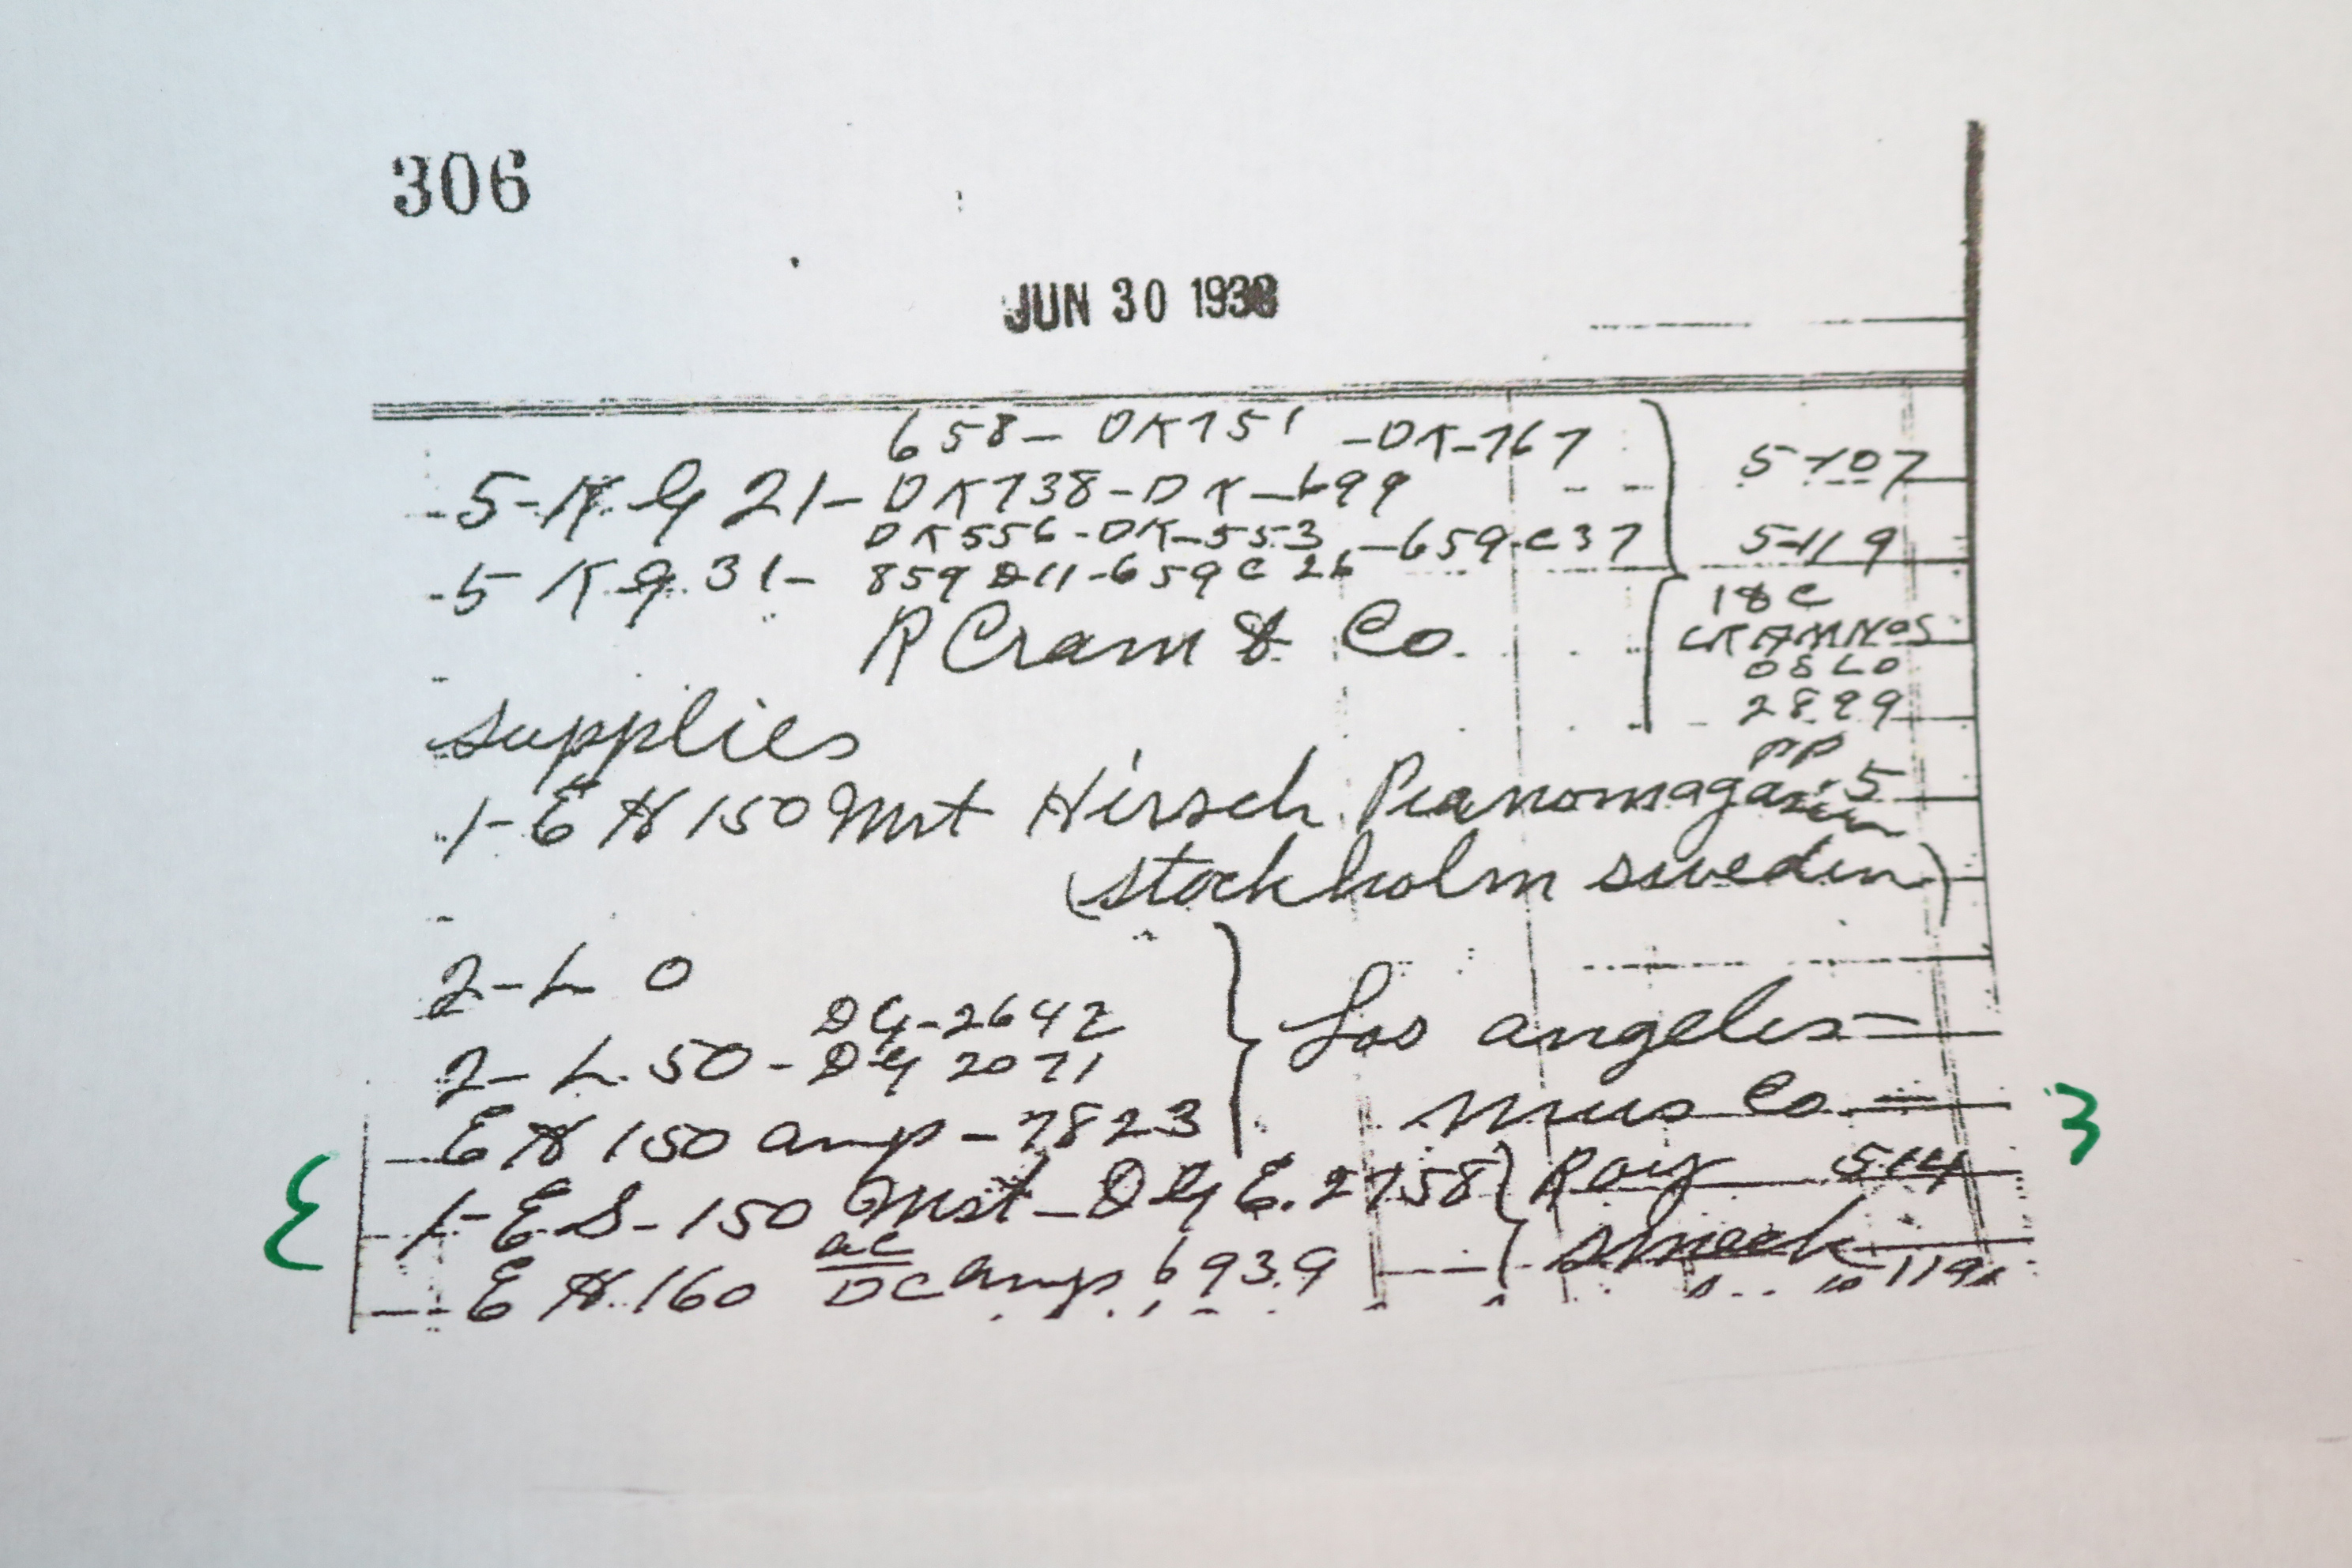 306
JUN 30 1938
658- DK751 -DK-767
5-K.G 21- DK738-DK-699 5-107
DK556-DK-553-659-C37 5-119
5 K.G. 31- 859D11-659C26
18C
R Cram & Co.
CRAMNOS
OSLO
2899
supplies
PP
1-EH 150 Inst Hirsch Pianomagasin 5
(Stockholm Sweden)
2-L O
DG-2642
2-L.50-DG 2071 Los angeles
EH 150 amp-7823 Mus Co
1-ES-150 Inst-DGE.2758 Roy 514
EH.160 AC/DC amp 6939 Smeck 119